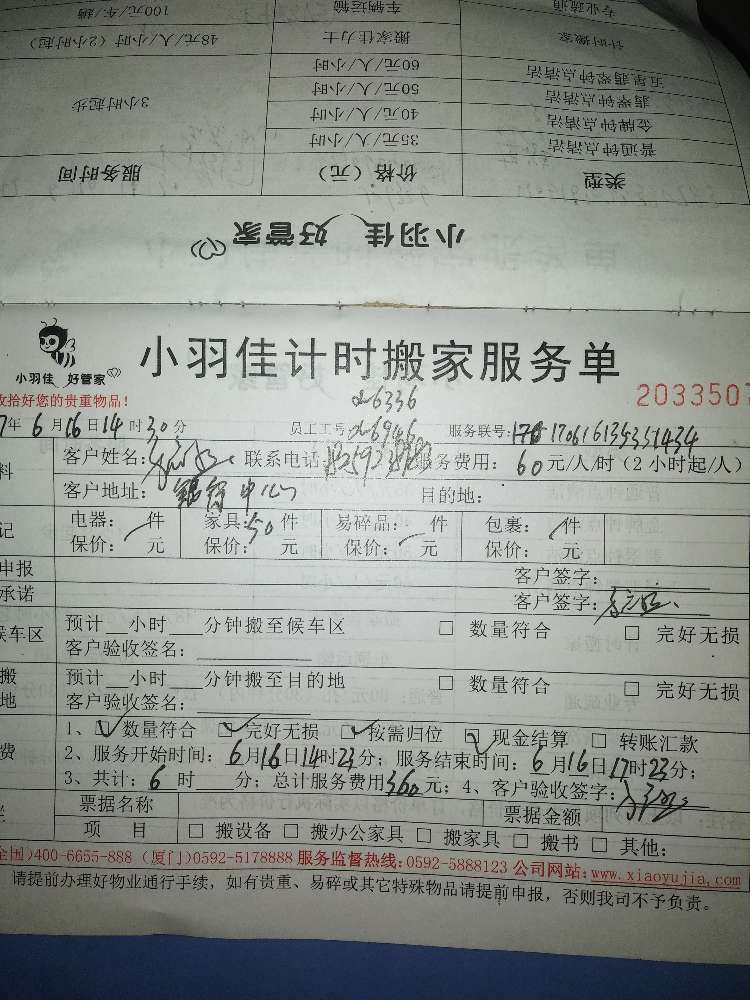 专业疏通 车辆运输 100元/车/辆
计时搬家 搬家佳力士 48元/人/小时（2小时起）
五星翡翠钟点清洁 60元/人/小时
翡翠钟点清洁 50元/人/小时
金牌钟点清洁 40元/人/小时 3小时起步
普通钟点清洁 35元/人/小时
类型 价格（元） 服务时间
小羽佳 好管家
小羽佳 好管家
小羽佳计时搬家服务单
收拾好您的贵重物品！ 2033507
6336
7年6月16日14时30分 员工工号: 6946 服务联号: 170616135351434
客户姓名: 联系电话: 服务费用: 60元/人/时（2小时起/人）
客户地址: 中心 目的地:
电器: 件 家具: 50件 易碎品: 件 包裹: 件
保价: 元 保价: 元 保价: 元 保价: 元
申报 客户签字:
承诺 客户签字:
候车区 预计 小时 分钟搬至候车区 □ 数量符合 □ 完好无损
客户验收签名:
搬 预计 小时 分钟搬至目的地 □ 数量符合 □ 完好无损
地 客户验收签名:
1、☑数量符合 ☑完好无损 ☑按需归位 ☑现金结算 □ 转账汇款
费 2、服务开始时间: 6月16日14时23分; 服务结束时间: 6月16日17时23分;
3、共计: 6时 分; 总计服务费用360元; 4、客户验收签字:
票据名称 票据金额
项 目 □ 搬设备 □ 搬办公家具 □ 搬家具 □ 搬书 □ 其他:
全国)400-6655-888 (厦门)0592-5178888 服务监督热线:0592-5888123 公司网站:www.xiaoyujia.com
请提前办理好物业通行手续，如有贵重、易碎或其它特殊物品请提前申报，否则我司不予负责。